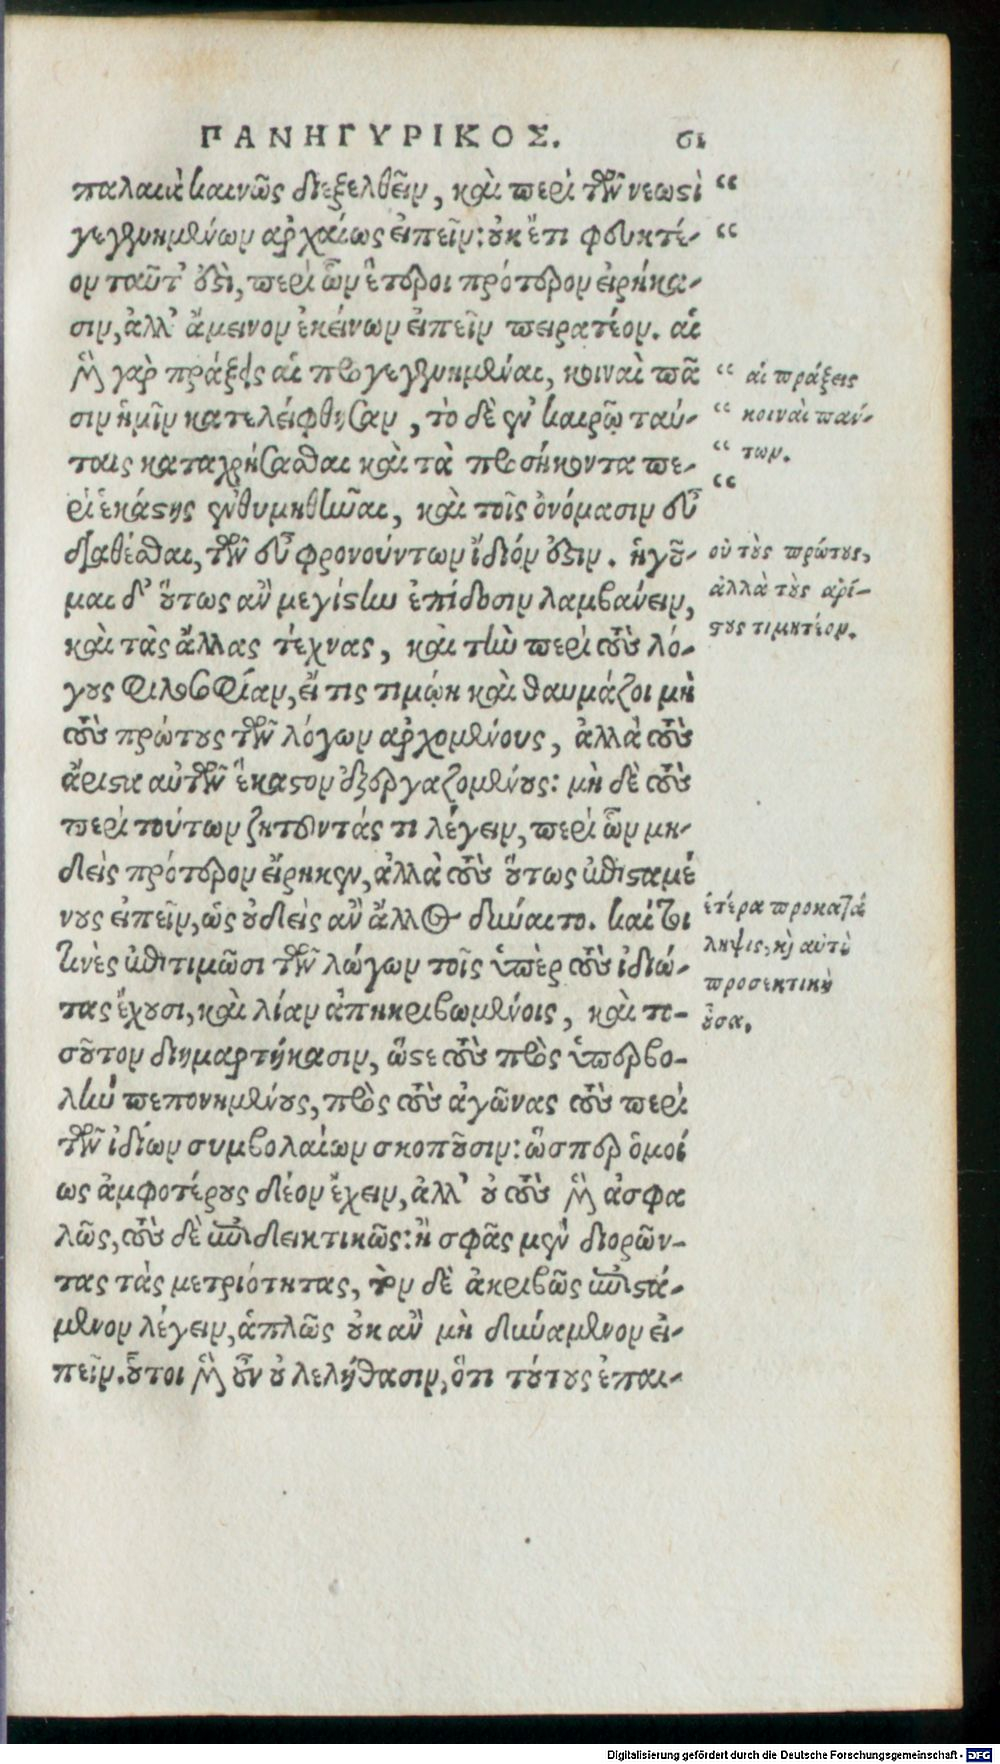 ΠΑΝΗΓΥΡΙΚΟΣ. σι
παλαιὰ καινῶς διεξελθεῖν, καὶ περὶ τῶν νεωστὶ “
γεγενημένων ἀρχαίως εἰπεῖν: οὐκ ἔτι φευκτέ- “
ον ταῦτ’ ἐστὶ, περὶ ὧν ἕτεροι πρότερον εἰρήκα-
σιν, ἀλλ’ ἄμεινον ἐκείνων εἰπεῖν πειρατέον. αἱ
μὲν γὰρ πράξεις αἱ προγεγενημέναι, κοιναὶ πᾶ “ αἱ πράξεις
σιν ἡμῖν κατελείφθησαν, τὸ δὲ ἐν καιρῷ ταύ- “ κοιναὶ πάν-
ταις καταχρήσασθαι καὶ τὰ προσήκοντα πε- “ των.
ρὶ ἑκάστης ἐνθυμηθῆναι, καὶ τοῖς ὀνόμασιν εὖ “
διαθέσθαι, τῶν εὖ φρονούντων ἴδιόν ἐστιν. ἡγοῦ- οὐ τοὺς πρώτους,
μαι δ’ οὕτως ἂν μεγίστην ἐπίδοσιν λαμβάνειν, ἀλλὰ τοὺς ἀρί-
καὶ τὰς ἄλλας τέχνας, καὶ τὴν περὶ τοὺς λό- στους τιμητέον.
γους φιλοσοφίαν, εἴ τις τιμῴη καὶ θαυμάζοι μὴ
τοὺς πρώτους τῶν λόγων ἀρχομένους, ἀλλὰ τοὺς
ἄριστα αὐτῶν ἕκαστον ἐξεργαζομένους: μὴ δὲ τοὺς
περὶ τούτων ζητοῦντάς τι λέγειν, περὶ ὧν μη-
δεὶς πρότερον εἴρηκεν, ἀλλὰ τοὺς οὕτως ἐπισταμέ
νους εἰπεῖν, ὡς οὐδεὶς ἂν ἄλλος δύναιτο. καίτοι ἑτέρα προκατά
τινὲς ἐπιτιμῶσι τῶν λώγων τοῖς ὑπὲρ τοὺς ἰδιώ- ληψις, καὶ αὐτὴ
τας ἔχουσι, καὶ λίαν ἀπηκριβωμένοις, καὶ το- προσεκτικὴ
σοῦτον διημαρτήκασιν, ὥστε τοὺς πρὸς ὑπερβο- οὖσα.
λὴν πεπονημένους, πρὸς τοὺς ἀγῶνας τοὺς περὶ
τῶν ἰδίων συμβολαίων σκοποῦσιν: ὥσπερ ὁμοί
ως ἀμφοτέρους δέον ἔχειν, ἀλλ’ οὐ τοὺς μὲν ἀσφα
λῶς, τοὺς δὲ ἐπιδεικτικῶς: ἢ σφᾶς μὲν διορῶν-
τας τὰς μετριότητας, τὸν δὲ ἀκριβῶς ἐπιστά-
μενον λέγειν, ἁπλῶς οὐκ ἂν μὴ δυνάμενον εἰ-
πεῖν. οὗτοι μὲν οὖν οὐ λελήθασιν, ὅτι τούτους ἐπαι-
Digitalisierung gefördert durch die Deutsche Forschungsgemeinschaft - DFG